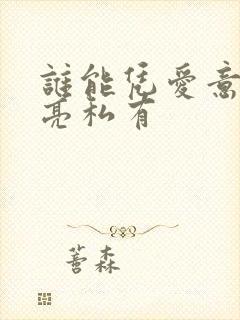 誰能凭愛意
亮私有
善森